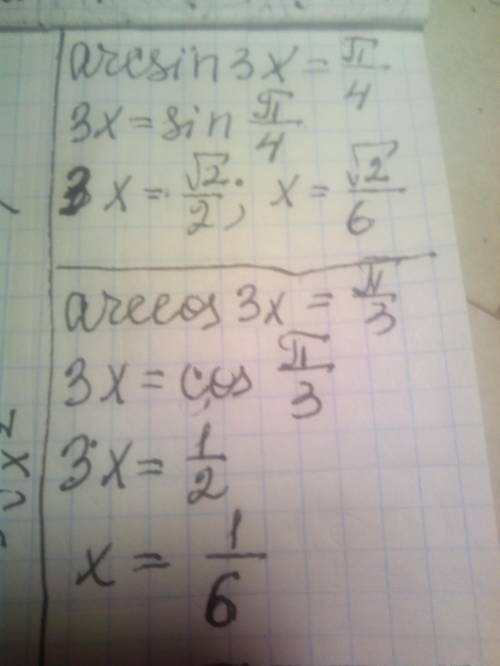 arcsin 3x = π/4
3x = sin π/4
3x = √2/2; x = √2/6
arccos 3x = π/3
3x = cos π/3
3x = 1/2
x = 1/6